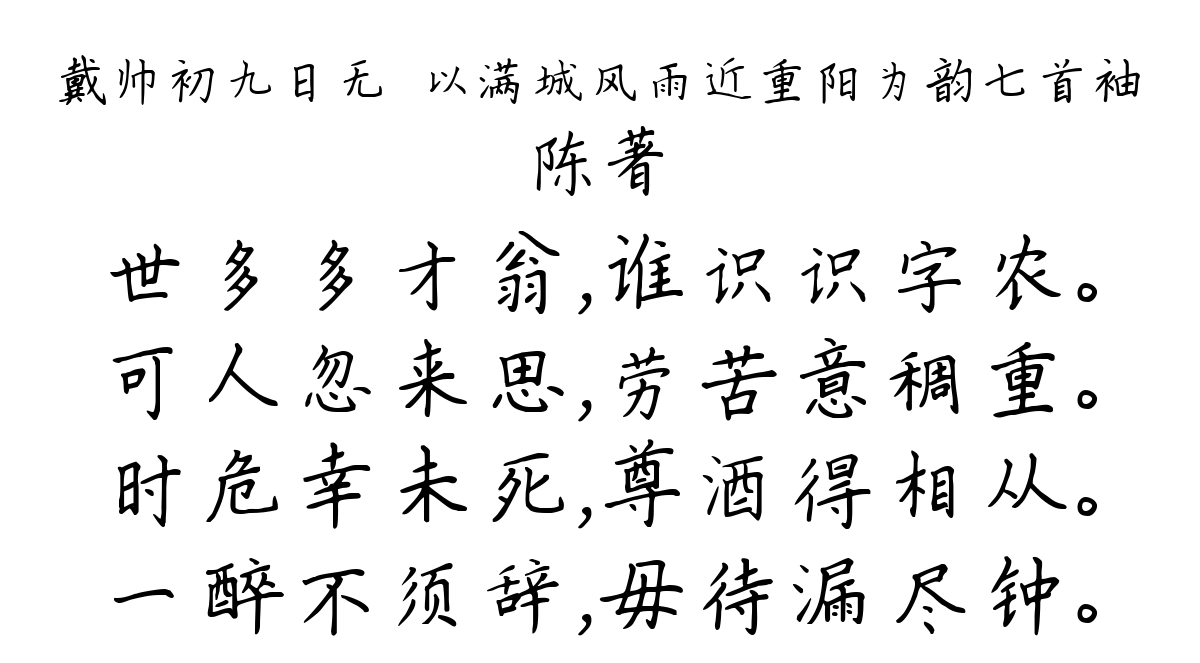 戴帅初九日无 以满城风雨近重阳为韵七首袖
陈著
世多多才翁,谁识识字农。
可人忽来思,劳苦意稠重。
时危幸未死,尊酒得相从。
一醉不须辞,毋待漏尽钟。